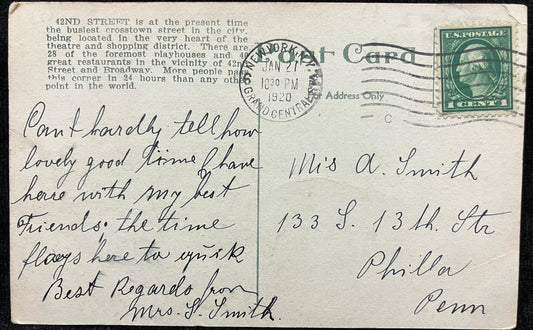 42ND STREET is at the present time
the busiest crosstown street in the city,
being located in the very heart of the
theatre and shopping district. There are
28 of the foremost playhouses and
great restaurants in the vicinity of 42nd
Street and Broadway. More people pass
this corner in 24 hours than any other
point in the world.
Post Card
Address Only
NEW YORK, N.Y.
JAN 27
1030 PM
1920
GRAND CENTRAL
C
U.S. POSTAGE
1 CENT 1
Can't hardly tell how
lovely good time I have
here with my best
Friends. the time
flays here to quick
Best Regards from
Mrs. S. Smith.
Mis A. Smith
133 S. 13th. Str
Philla
Penn